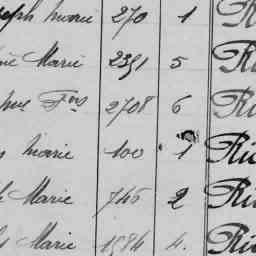 eph Marie 270 1 R
Marie 2391 5 Ri
Fois 2708 6 Ri
Marie 100 1 Ric
Marie 746 2 Ri
Marie 1984 4. Ri